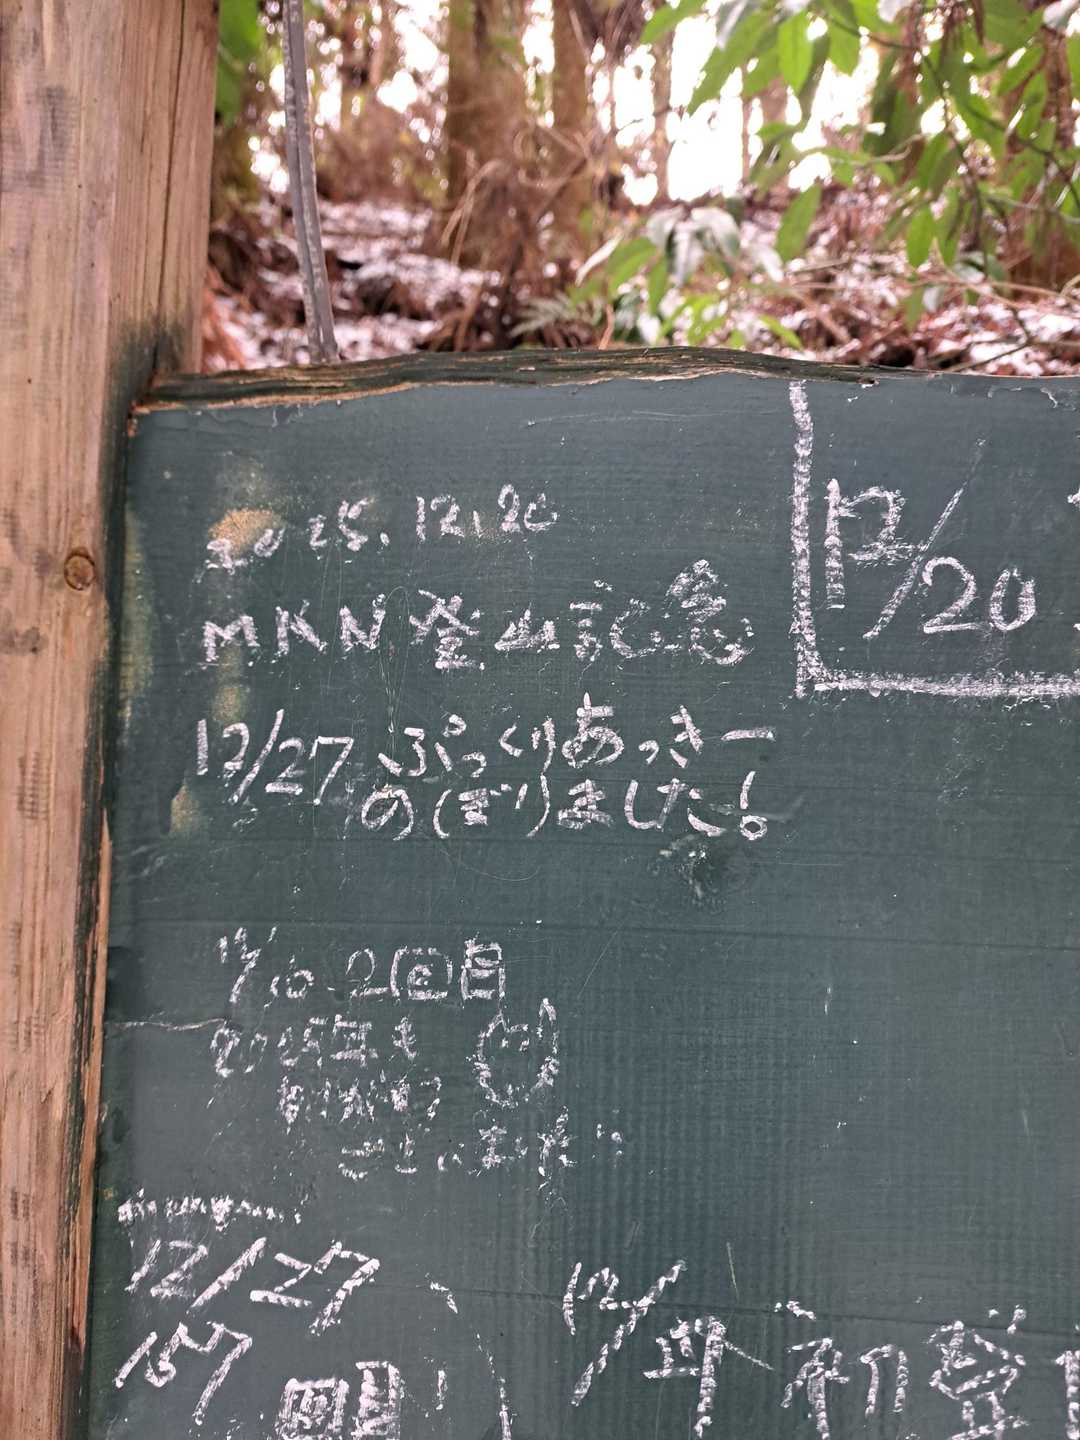 2025.12.20
MKN登山記念
12/27 ぷっくりあっきー
のぼりました!
12/20
2回目
2025年も
12/27
157
回目!
初登